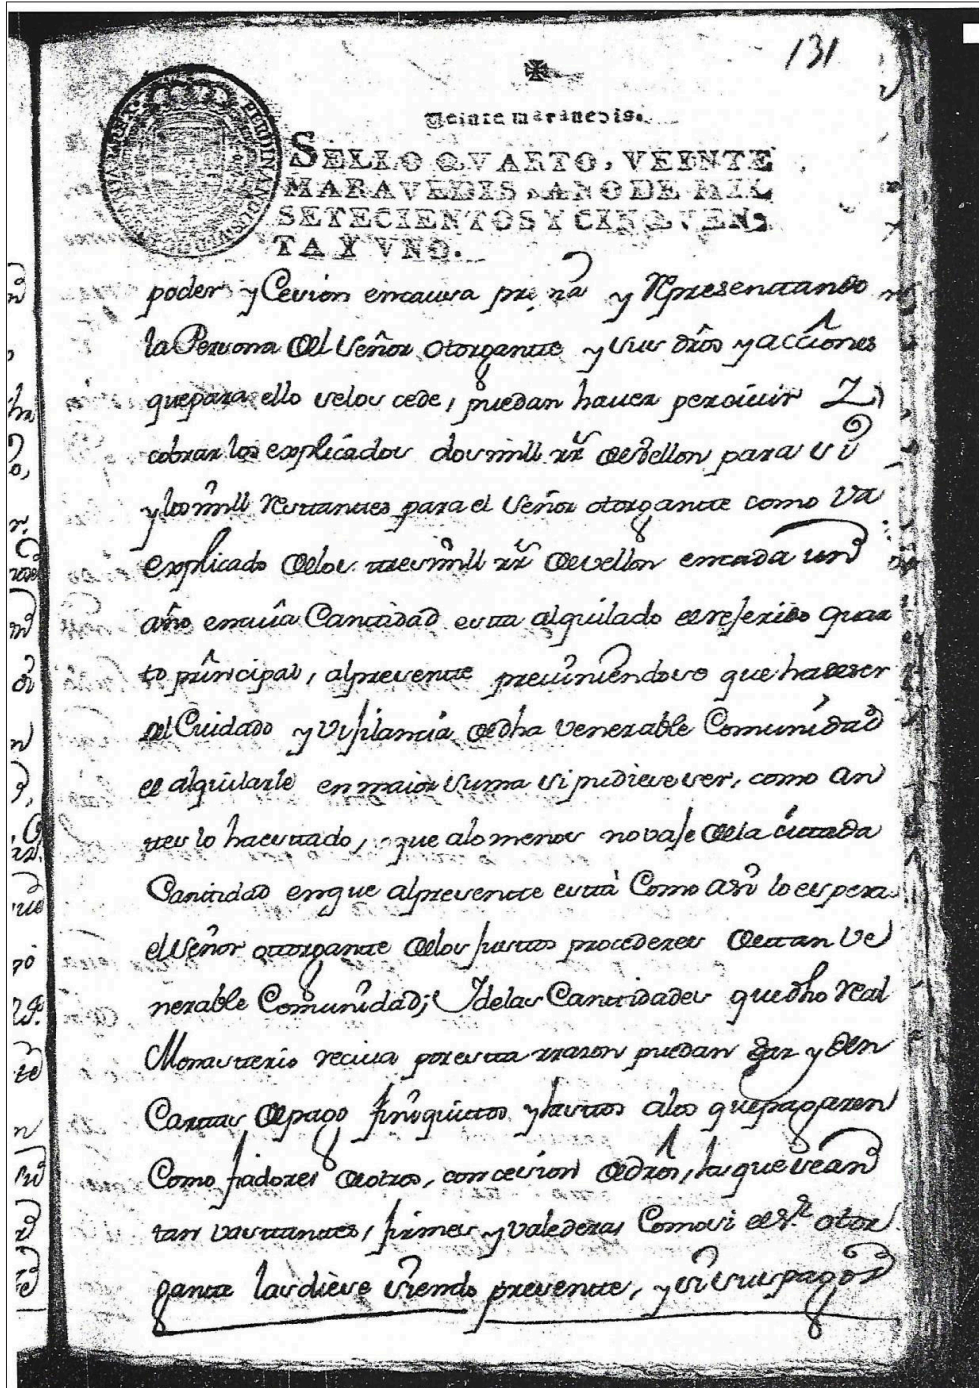 131
Veinte maravedis.
SELLO QVARTO, VEINTE
MARAVEDIS, AÑO DE MIL
SETECIENTOS Y CINQVEN-
TA Y VNO.
poder y Cesion en causa propria y Representando
la Persona del señor otorgante y sus dros y acciones
que para ello selos cede, puedan haver percivir Y
cobrar los explicados dos mill rr.s de vellon para si
y los mill Restantes para el señor otorgante como va
explicado delos tres mill rr.s de vellon en cada un
año en cuia Cantidad esta alquilado el referido quar
to principal, al presente previniendose que ha de ser
del Cuidado y vijilancia de dha venerable Comunidad
el alquilarle en maior suma si pudiese ser, como an
tes lo ha estado, que alo menos no vaje dela cittada
Cantidad en que al presente esttà Como asi lo espera
el señor ottorgante delos justtos procederes de tan Ve
nerable Comunidad; Y delas Canttidades que dho Real
Monastterio reciva por estta rrazon puedan dar y den
Carttas de pago finiquittos y lasttos alos que pagaren
Como fiadores de otros, con cesion de dros, las que sean
tan vasttanttes, firmes y valederas Como si el s.r otor
gante las diese siendo presentte, y si sus pagos